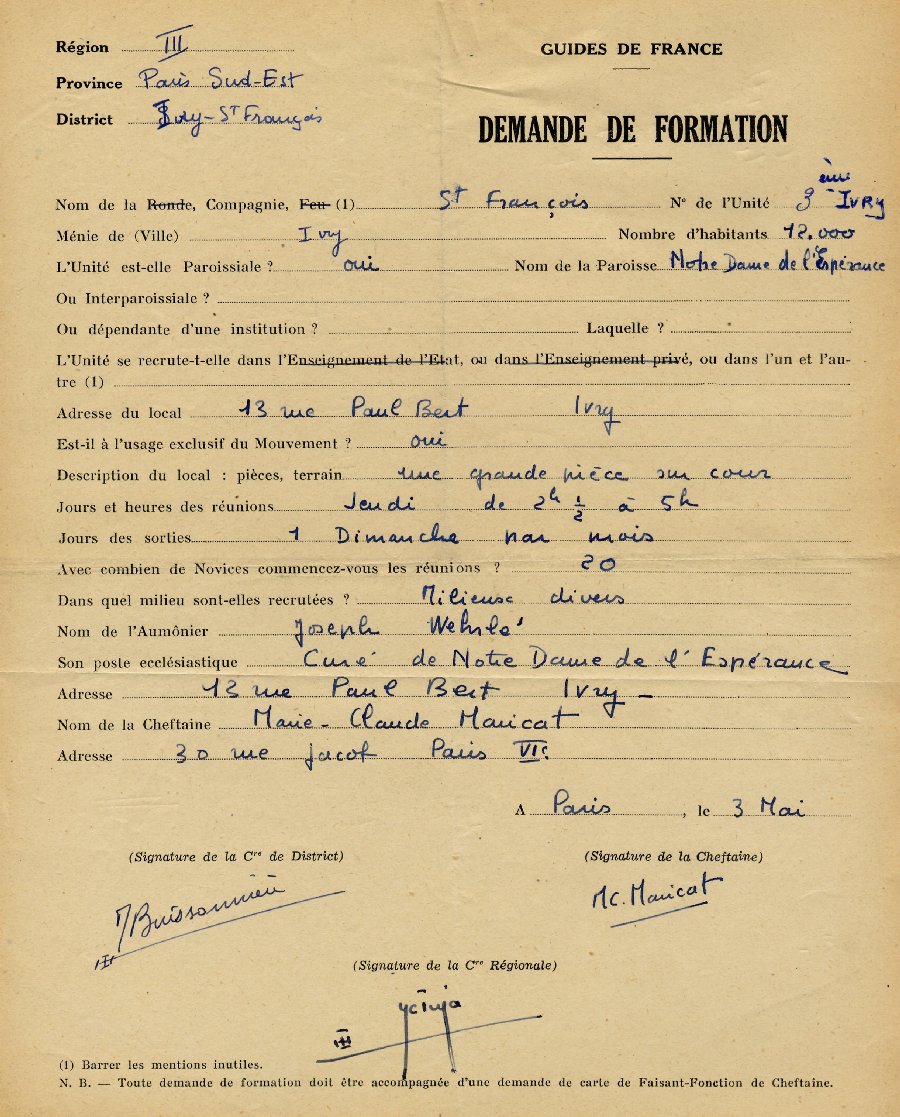 Région III
GUIDES DE FRANCE
Province Paris Sud-Est
District Ivry-St François
DEMANDE DE FORMATION
Nom de la Ronde, Compagnie, Feu (1) St François N° de l'Unité 3ème IVRY
Ménie de (Ville) Ivry Nombre d'habitants 12.000
L'Unité est-elle Paroissiale ? oui Nom de la Paroisse Notre Dame de l'Espérance
Ou Interparoissiale ?
Ou dépendante d'une institution ? Laquelle ?
L'Unité se recrute-t-elle dans l'Enseignement de l'Etat, ou dans l'Enseignement privé, ou dans l'un et l'au-
tre (1)
Adresse du local 13 rue Paul Bert Ivry
Est-il à l'usage exclusif du Mouvement ? oui
Description du local : pièces, terrain une grande pièce sur cour
Jours et heures des réunions Jeudi de 2h 1/2 à 5h
Jours des sorties 1 Dimanche par mois
Avec combien de Novices commencez-vous les réunions ? 20
Dans quel milieu sont-elles recrutées ? Milieux divers
Nom de l'Aumônier Joseph Wehrlé
Son poste ecclésiastique Curé de Notre Dame de l'Espérance
Adresse 13 rue Paul Bert Ivry
Nom de la Cheftaine Marie-Claude Maricat
Adresse 30 rue Jacob Paris VIe
A Paris, le 3 Mai
(Signature de la Cre de District) (Signature de la Cheftaine)
MC. Maricat
III
(Signature de la Cre Régionale)
III
(1) Barrer les mentions inutiles.
N. B. — Toute demande de formation doit être accompagnée d'une demande de carte de Faisant-Fonction de Cheftaine.